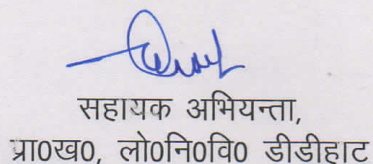 सहायक अभियन्ता,
प्रा0ख0, लो0नि0वि0 डीडीहाट